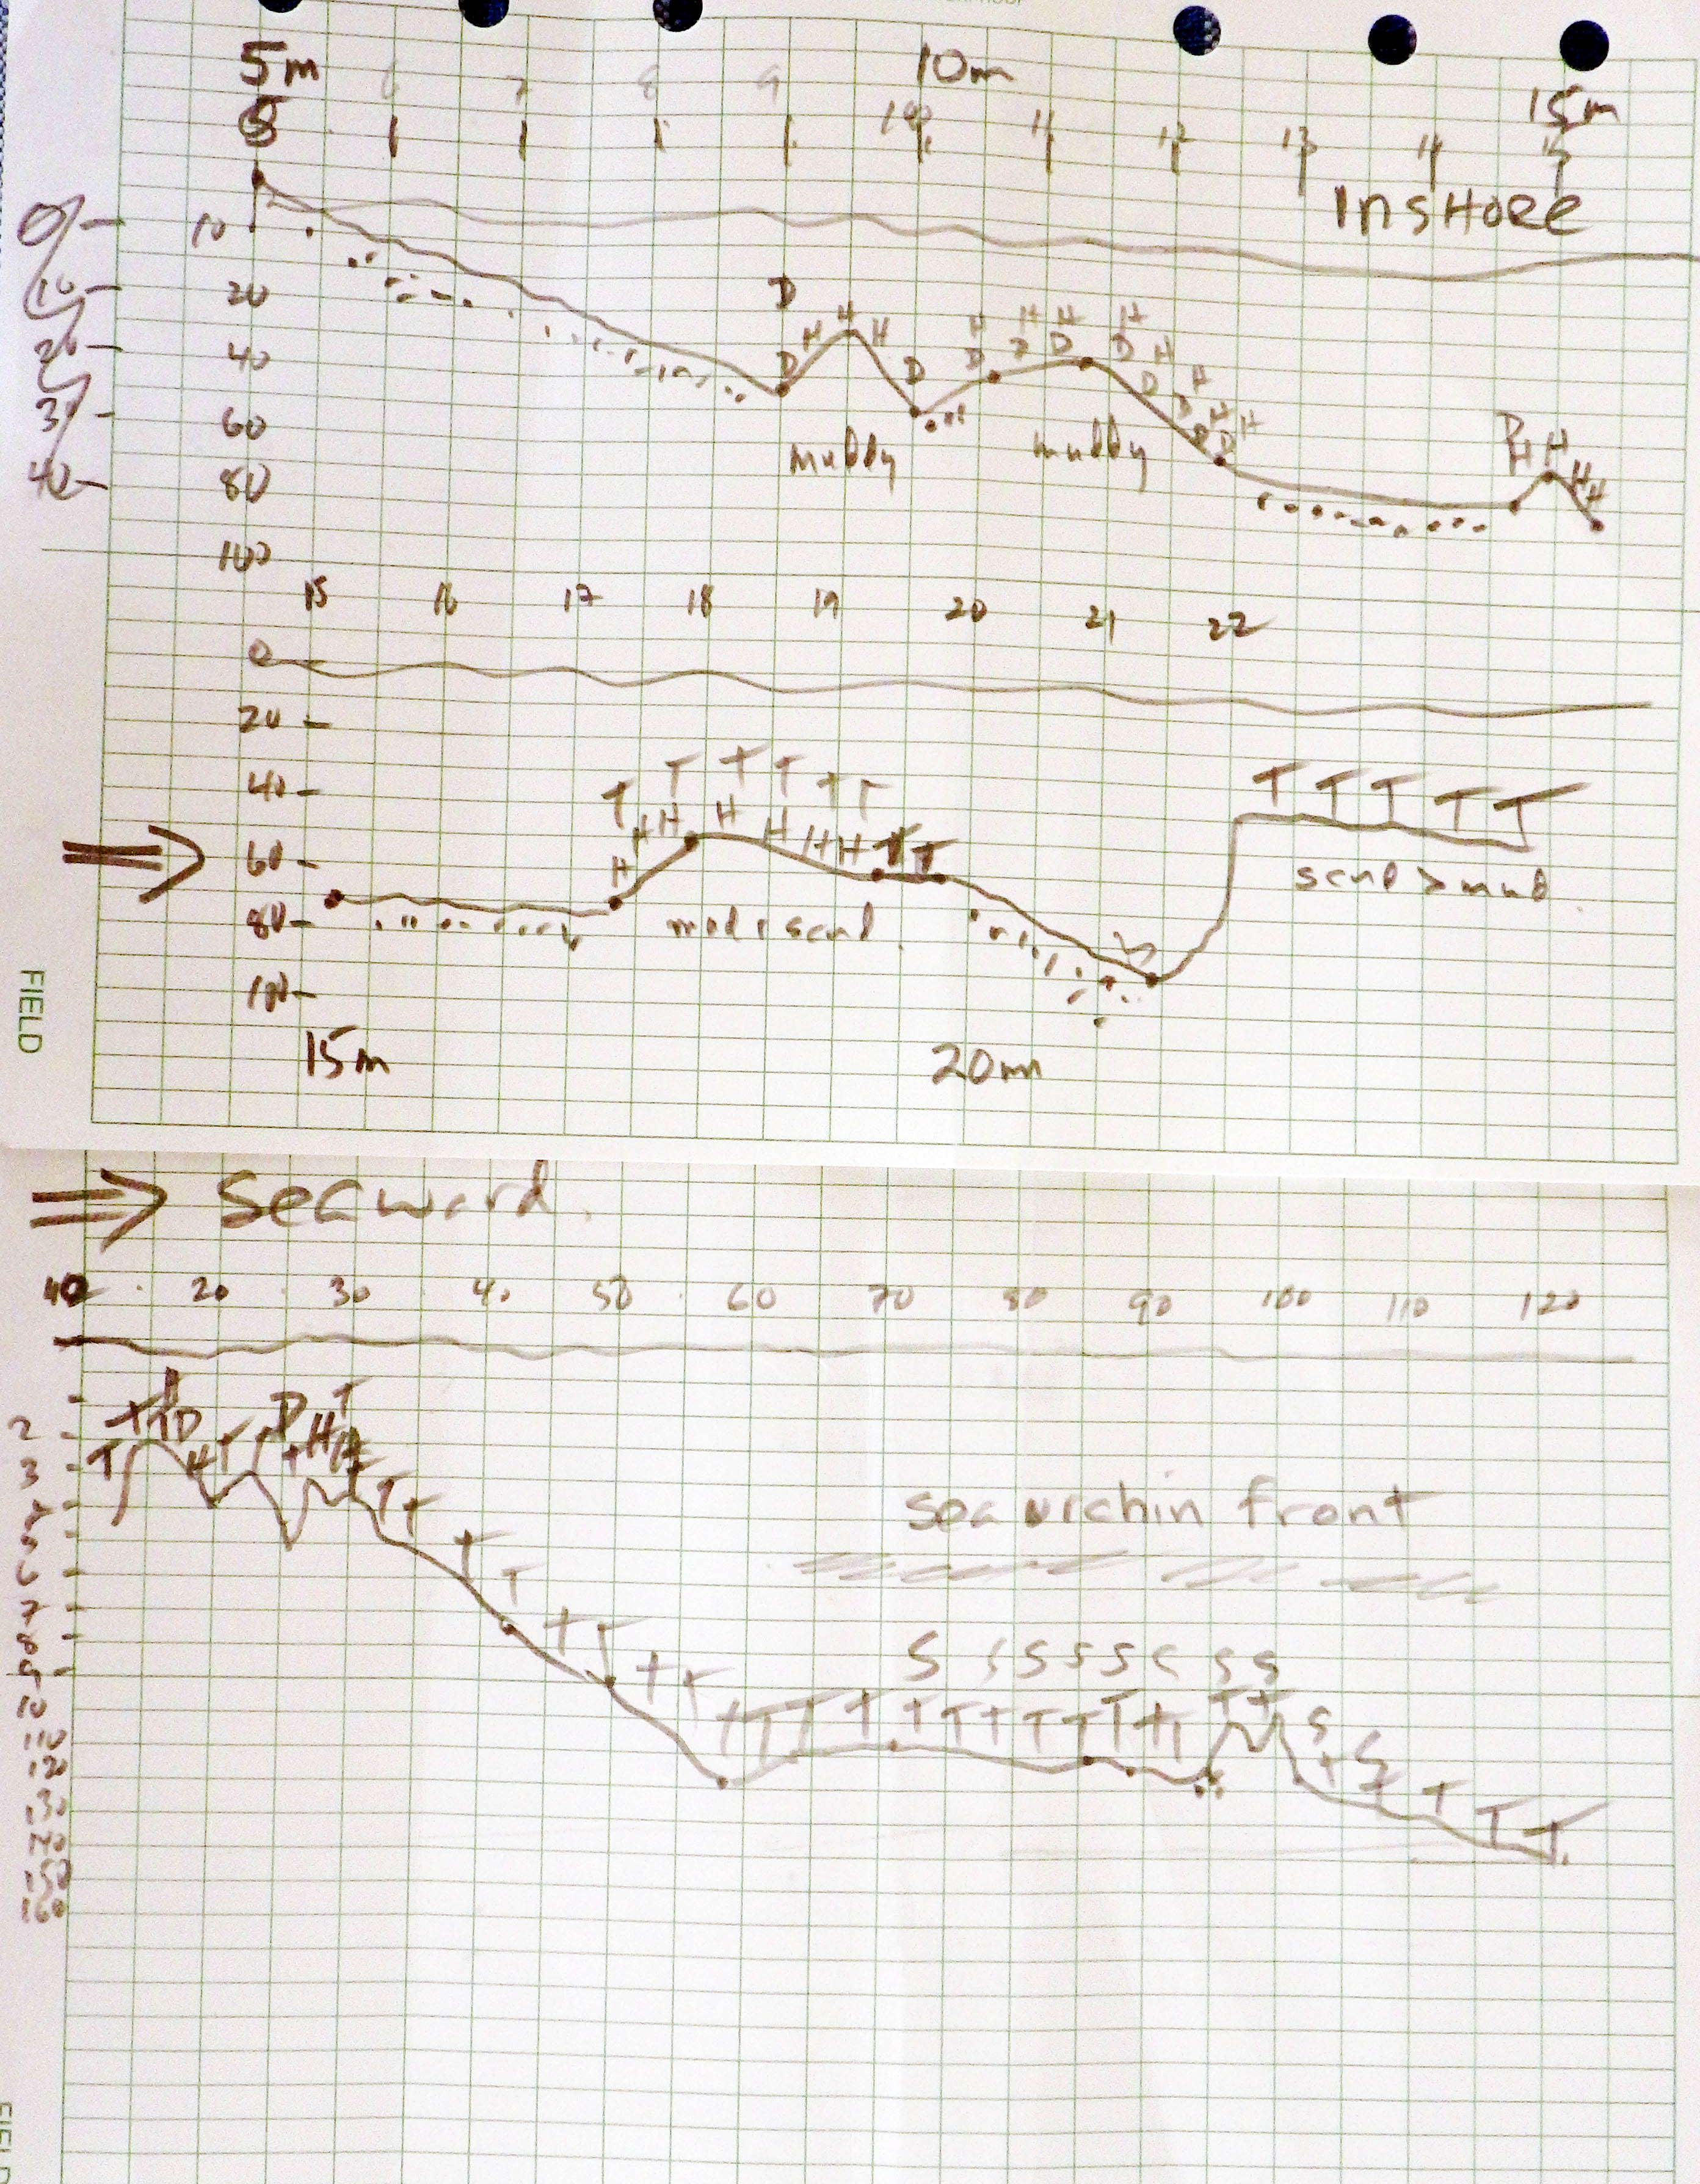 5m 10m 15m
6 7 8 9 10 11 12 13 14 15
INSHORE
0
10
20
30
40
10
20
40
60
80
100
D
H H H
D D D D D D
H H H H H H H
muddy muddy
H H H H
15 16 17 18 19 20 21 22
0
20
40
60
80
100
T T T T T T
H H H H H H H T T
T T T T T
mud & sand
sand > mud
15m 20m
FIELD
Seaward
10 20 30 40 50 60 70 80 90 100 110 120
2
3
4
5
6
7
8
9
10
110
120
130
140
150
160
T T T D H T D H T
T T
T T
T T
T T
sea urchin front
S S S S S S S S
T T T T T T T T T T T T T T
S S
T T T T T
FIELD